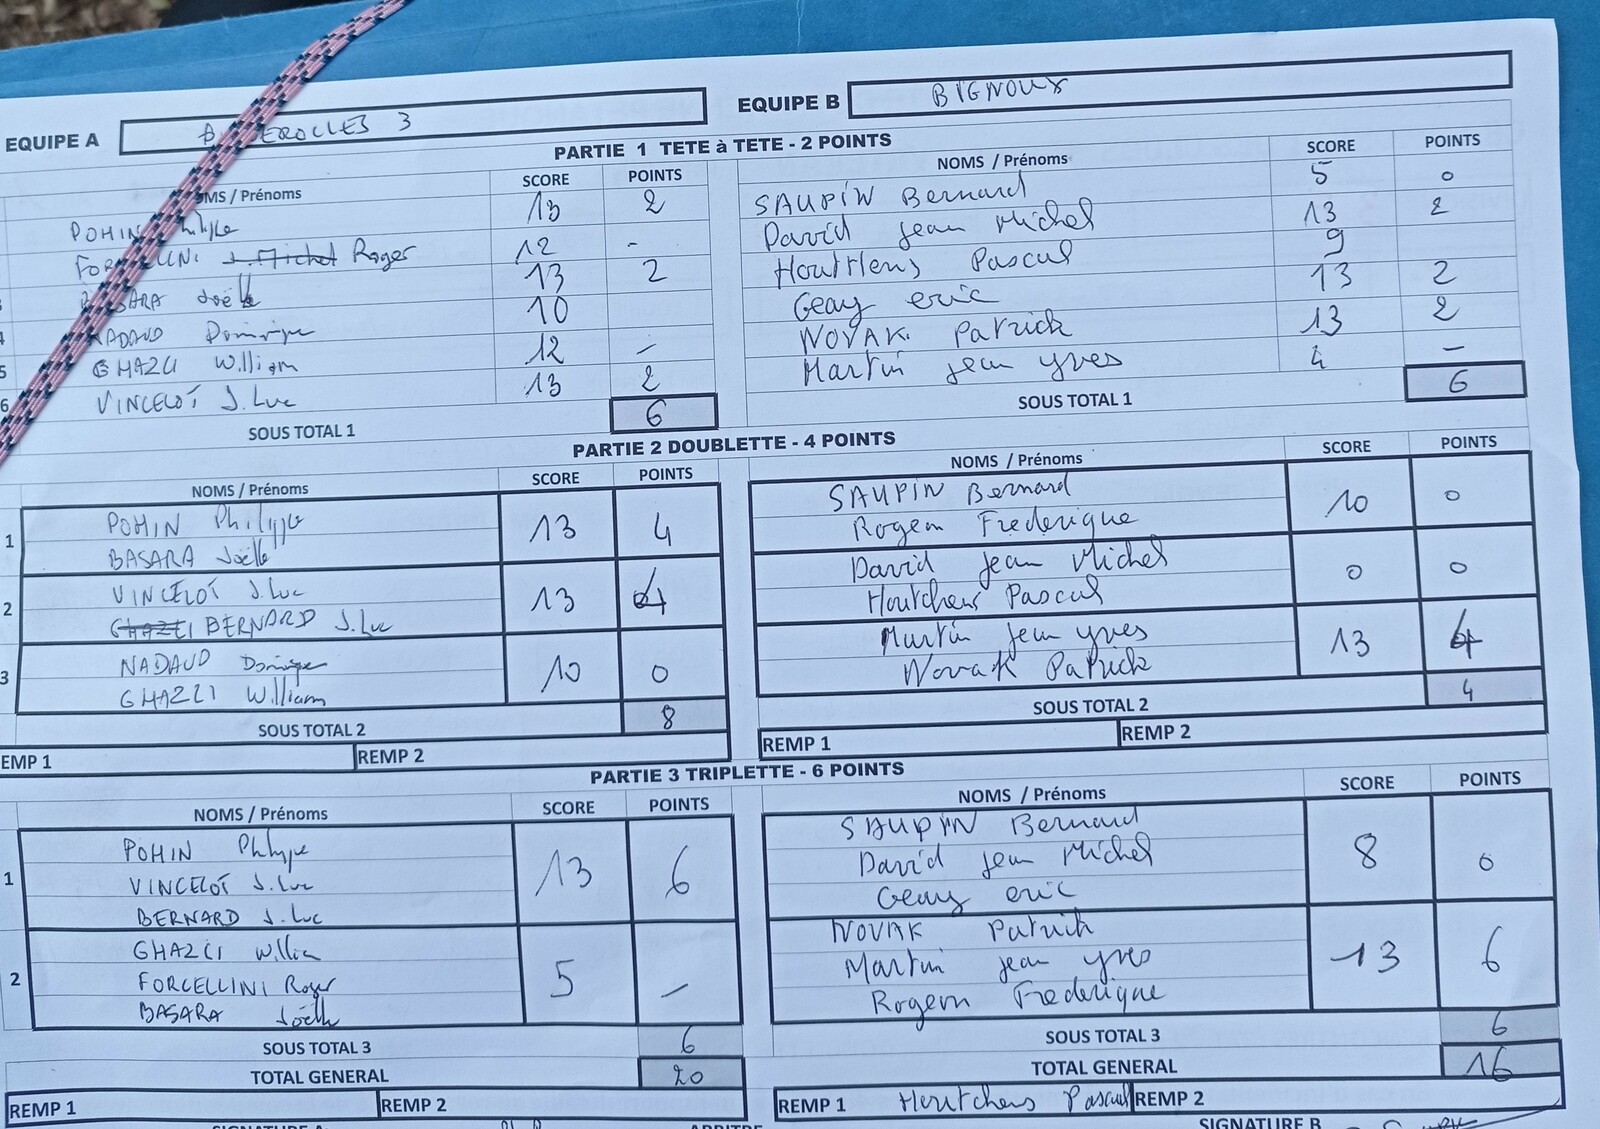 EQUIPE A EROLLES 3 EQUIPE B BIGNOUX
PARTIE 1 TETE à TETE - 2 POINTS
MS / Prénoms SCORE POINTS NOMS / Prénoms SCORE POINTS
POMIN 13 2 SAUPIN Bernard 5 0
FORCELLINI J. Michel Roger 12 - David Jean Michel 13 2
BASARA Joëlle 13 2 Houtchens Pascal 9
NADAUD Dominique 10 Geay eric 13 2
5 GHAZLI William 12 - NOVAK Patrick 13 2
6 VINCELOT J. Luc 13 2 Martin Jean yves 4 -
SOUS TOTAL 1 6 SOUS TOTAL 1 6
PARTIE 2 DOUBLETTE - 4 POINTS
NOMS / Prénoms SCORE POINTS NOMS / Prénoms SCORE POINTS
1 POMIN Philippe 13 4 SAUPIN Bernard 10 0
BASARA Joëlle Rogeon Frederique
2 VINCELOT J. Luc 13 4 David Jean Michel 0 0
GHAZLI BERNARD J. Luc Houtchens Pascal
3 NADAUD Dominique 10 0 Martin Jean yves 13 4
GHAZLI William Novak Patrick
SOUS TOTAL 2 8 SOUS TOTAL 2 4
EMP 1 REMP 2 REMP 1 REMP 2
PARTIE 3 TRIPLETTE - 6 POINTS
NOMS / Prénoms SCORE POINTS NOMS / Prénoms SCORE POINTS
1 POMIN Philippe 13 6 SAUPIN Bernard 8 0
VINCELOT J. Luc David Jean Michel
BERNARD J. Luc Geay eric
2 GHAZLI William 5 - NOVAK Patrick 13 6
FORCELLINI Roger Martin Jean yves
BASARA Joëlle Rogeon Frederique
SOUS TOTAL 3 6 SOUS TOTAL 3 6
TOTAL GENERAL 20 TOTAL GENERAL 16
REMP 1 REMP 2 REMP 1 Houtchens Pascal REMP 2
SIGNATURE A ARBITRE SIGNATURE B